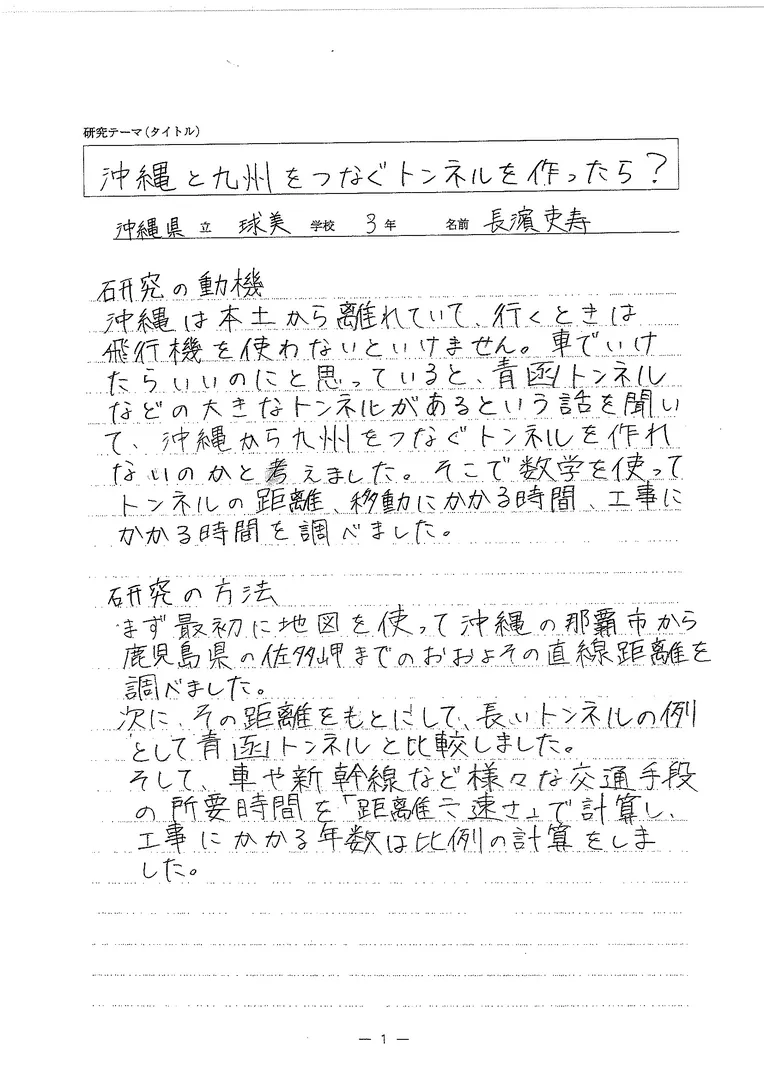 研究テーマ(タイトル)
沖縄と九州をつなぐトンネルを作ったら?
沖縄県 立 球美 学校 3年 名前 長濱吏寿
研究の動機
沖縄は本土から離れていて、行くときは
飛行機を使わないといけません。車でいけ
たらいいのにと思っていると、青函トンネル
などの大きなトンネルがあるという話を聞い
て、沖縄から九州をつなぐトンネルを作れ
ないのかと考えました。そこで数学を使って
トンネルの距離、移動にかかる時間、工事に
かかる時間を調べました。
研究の方法
まず最初に地図を使って沖縄の那覇市から
鹿児島県の佐多岬までのおおよその直線距離を
調べました。
次に、その距離をもとにして、長いトンネルの例
として青函トンネルと比較しました。
そして、車や新幹線など様々な交通手段
の所要時間を「距離÷速さ」で計算し、
工事にかかる年数は比例の計算をしま
した。
— 1 —